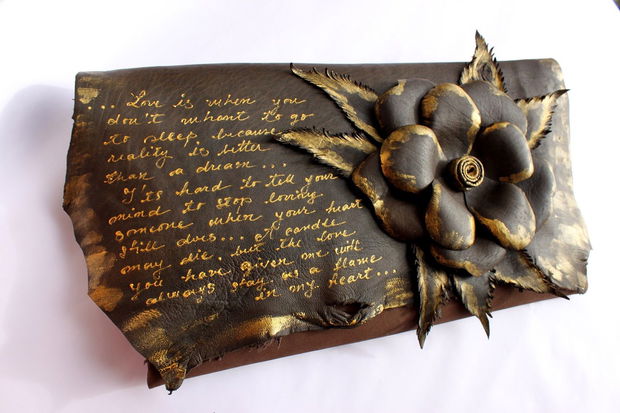 ... Love is when you
don't whant to go
to sleep, because
reality is better
than a dream...
It's hard to tell your
mind to stop loving
someone when your heart
still does... A candle
may die, but the love
you have given me will
always stay as a flame
in my heart...